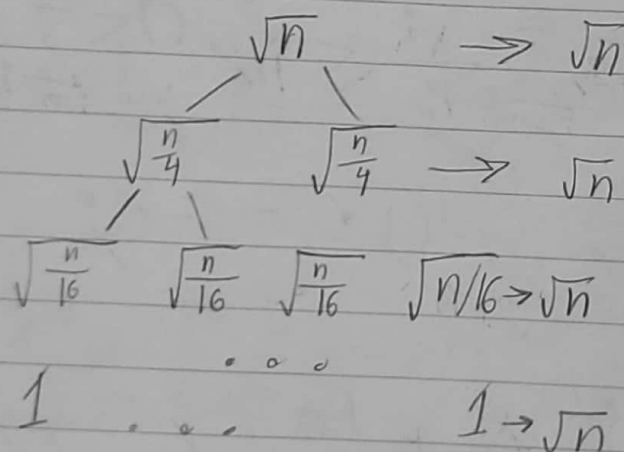 √n → √n
√(n/4) √(n/4) → √n
√(n/16) √(n/16) √(n/16) √(n/16) → √n
...
1 ... 1 → √n